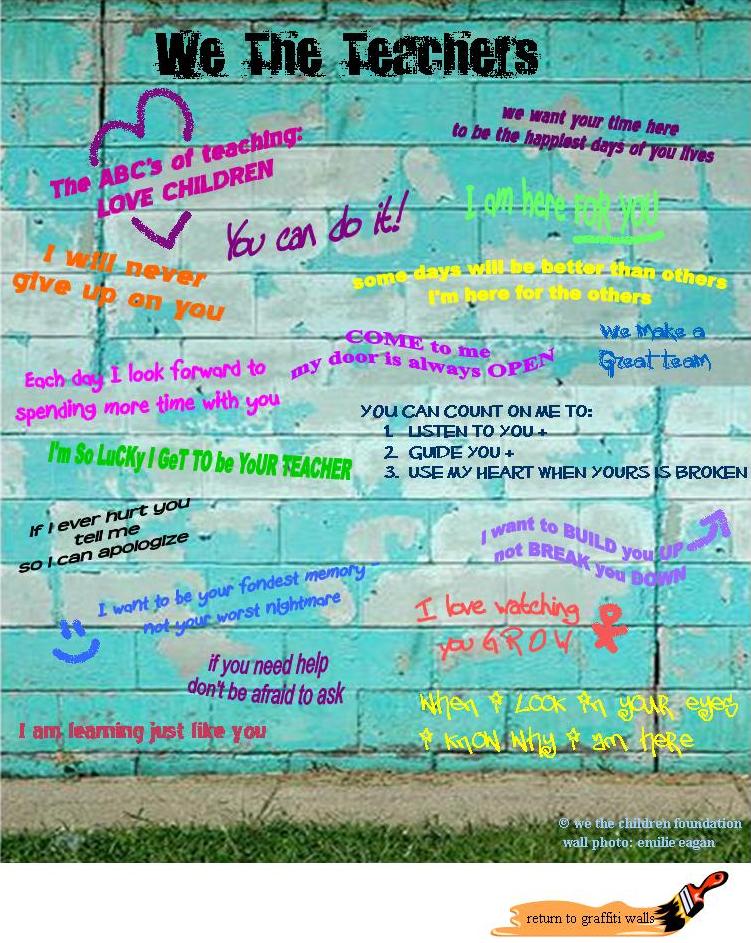 We The Teachers
The ABC's of teaching:
LOVE CHILDREN
we want your time here
to be the happiest days of you lives
You can do it!
I am here FOR YOU
I will never
give up on you
some days will be better than others
I'm here for the others
COME to me
my door is always OPEN
We Make a
Great team
Each day I look forward to
spending more time with you
YOU CAN COUNT ON ME TO:
1. LISTEN TO YOU +
2. GUIDE YOU +
3. USE MY HEART WHEN YOURS IS BROKEN
I'm So LuCKy I GeT TO be YoUR TEACHER
If I ever hurt you
tell me
so I can apologize
I want to BUILD you UP
not BREAK you DOWN
I want to be your fondest memory -
not your worst nightmare
I love watching
you G R O W
if you need help
don't be afraid to ask
When i Look in your eyes
i know why i am here
I am learning just like you
© we the children foundation
wall photo: emilie eagan
return to graffiti walls